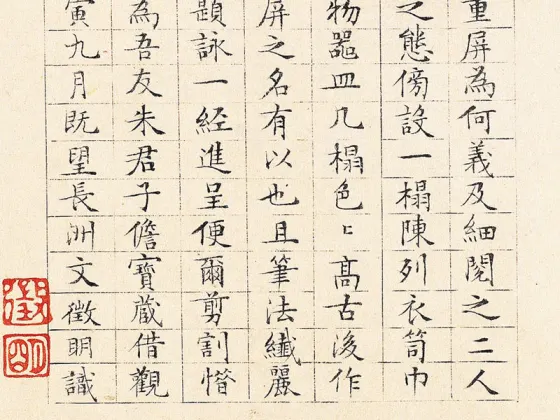 重屏為何義及細閱之二人
之態傍設一榻陳列衣笥巾
物器皿几榻色〻高古後作
屏之名有以也且筆法纖麗
題詠一經進呈便爾剪割
為吾友朱君子儋寶蔵借觀
寅九月既望長洲文徵明識
徵明